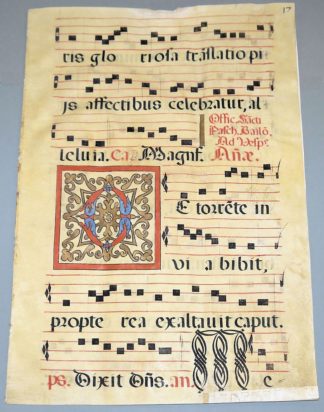 17
tris glo riosa trāslatio pi
js affectibus celebratur, al
leluia. Cad Magnf. Añæ.
Offic. Sācti
Pasch. Bailō.
Ad Vesp̄s
E torrēte in
via bibit,
propte rea exaltauit caput.
ps. Dixit Dñs. an. e